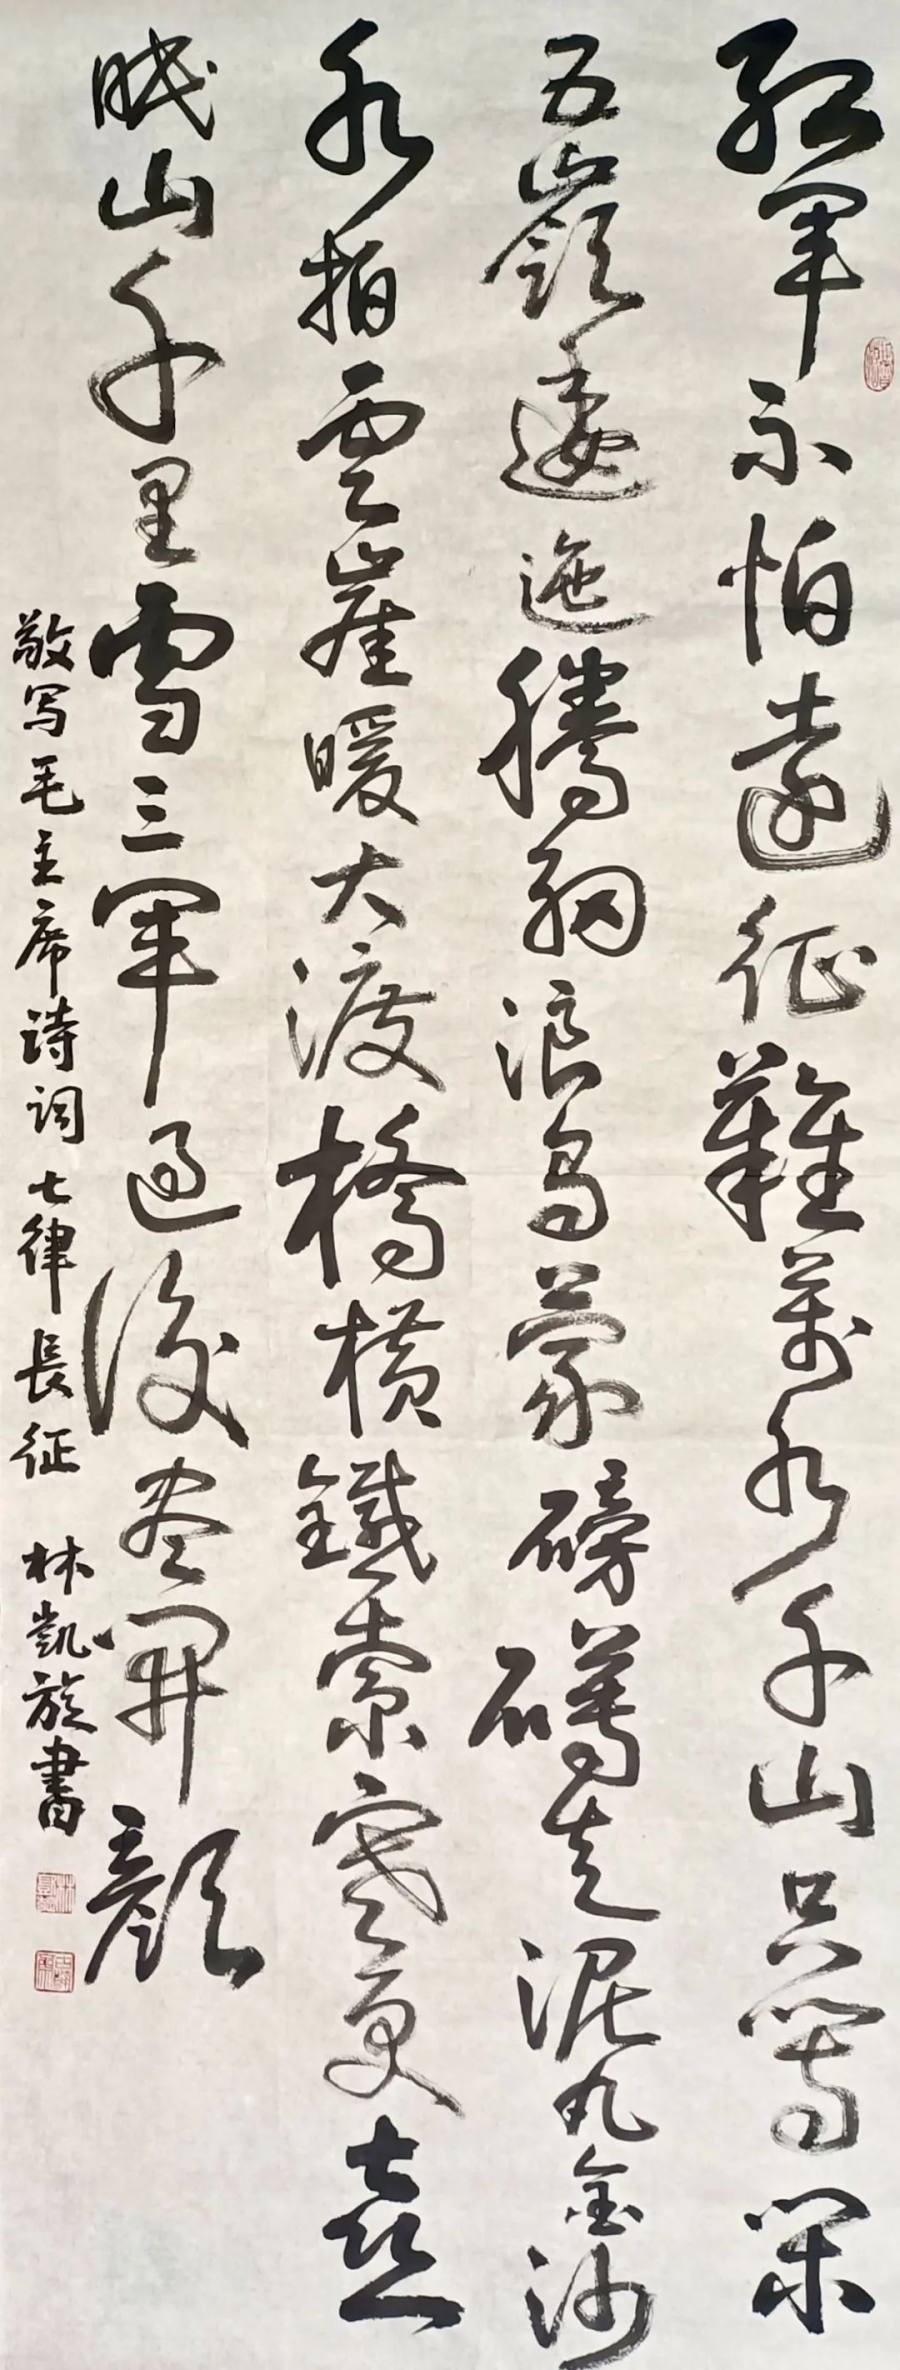 紅軍不怕遠征難萬水千山只等閑
五嶺逶迤騰細浪烏蒙磅礴走泥丸金沙
水拍雲崖暖大渡橋橫鐵索寒更喜
岷山千里雪三軍過後盡開顏
敬写毛主席诗词七律長征 林凱旋書